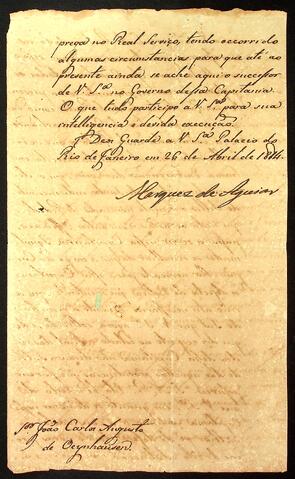 prega no Real Serviço, tendo occorrido
algumas circunstancias para que até ao
presente ainda se ache aqui o successor
de V. S.ª no Governo dessa Capitania.
O que tudo participo a V. S.ª para sua
intelligencia e devida execução.
D.s Guarde a V. S.ª Palacio do
Rio de Janeiro em 26 de Abril de 1814.
Marquez de Aguiar
S.r João Carlos Augusto
de Oeynhausen.